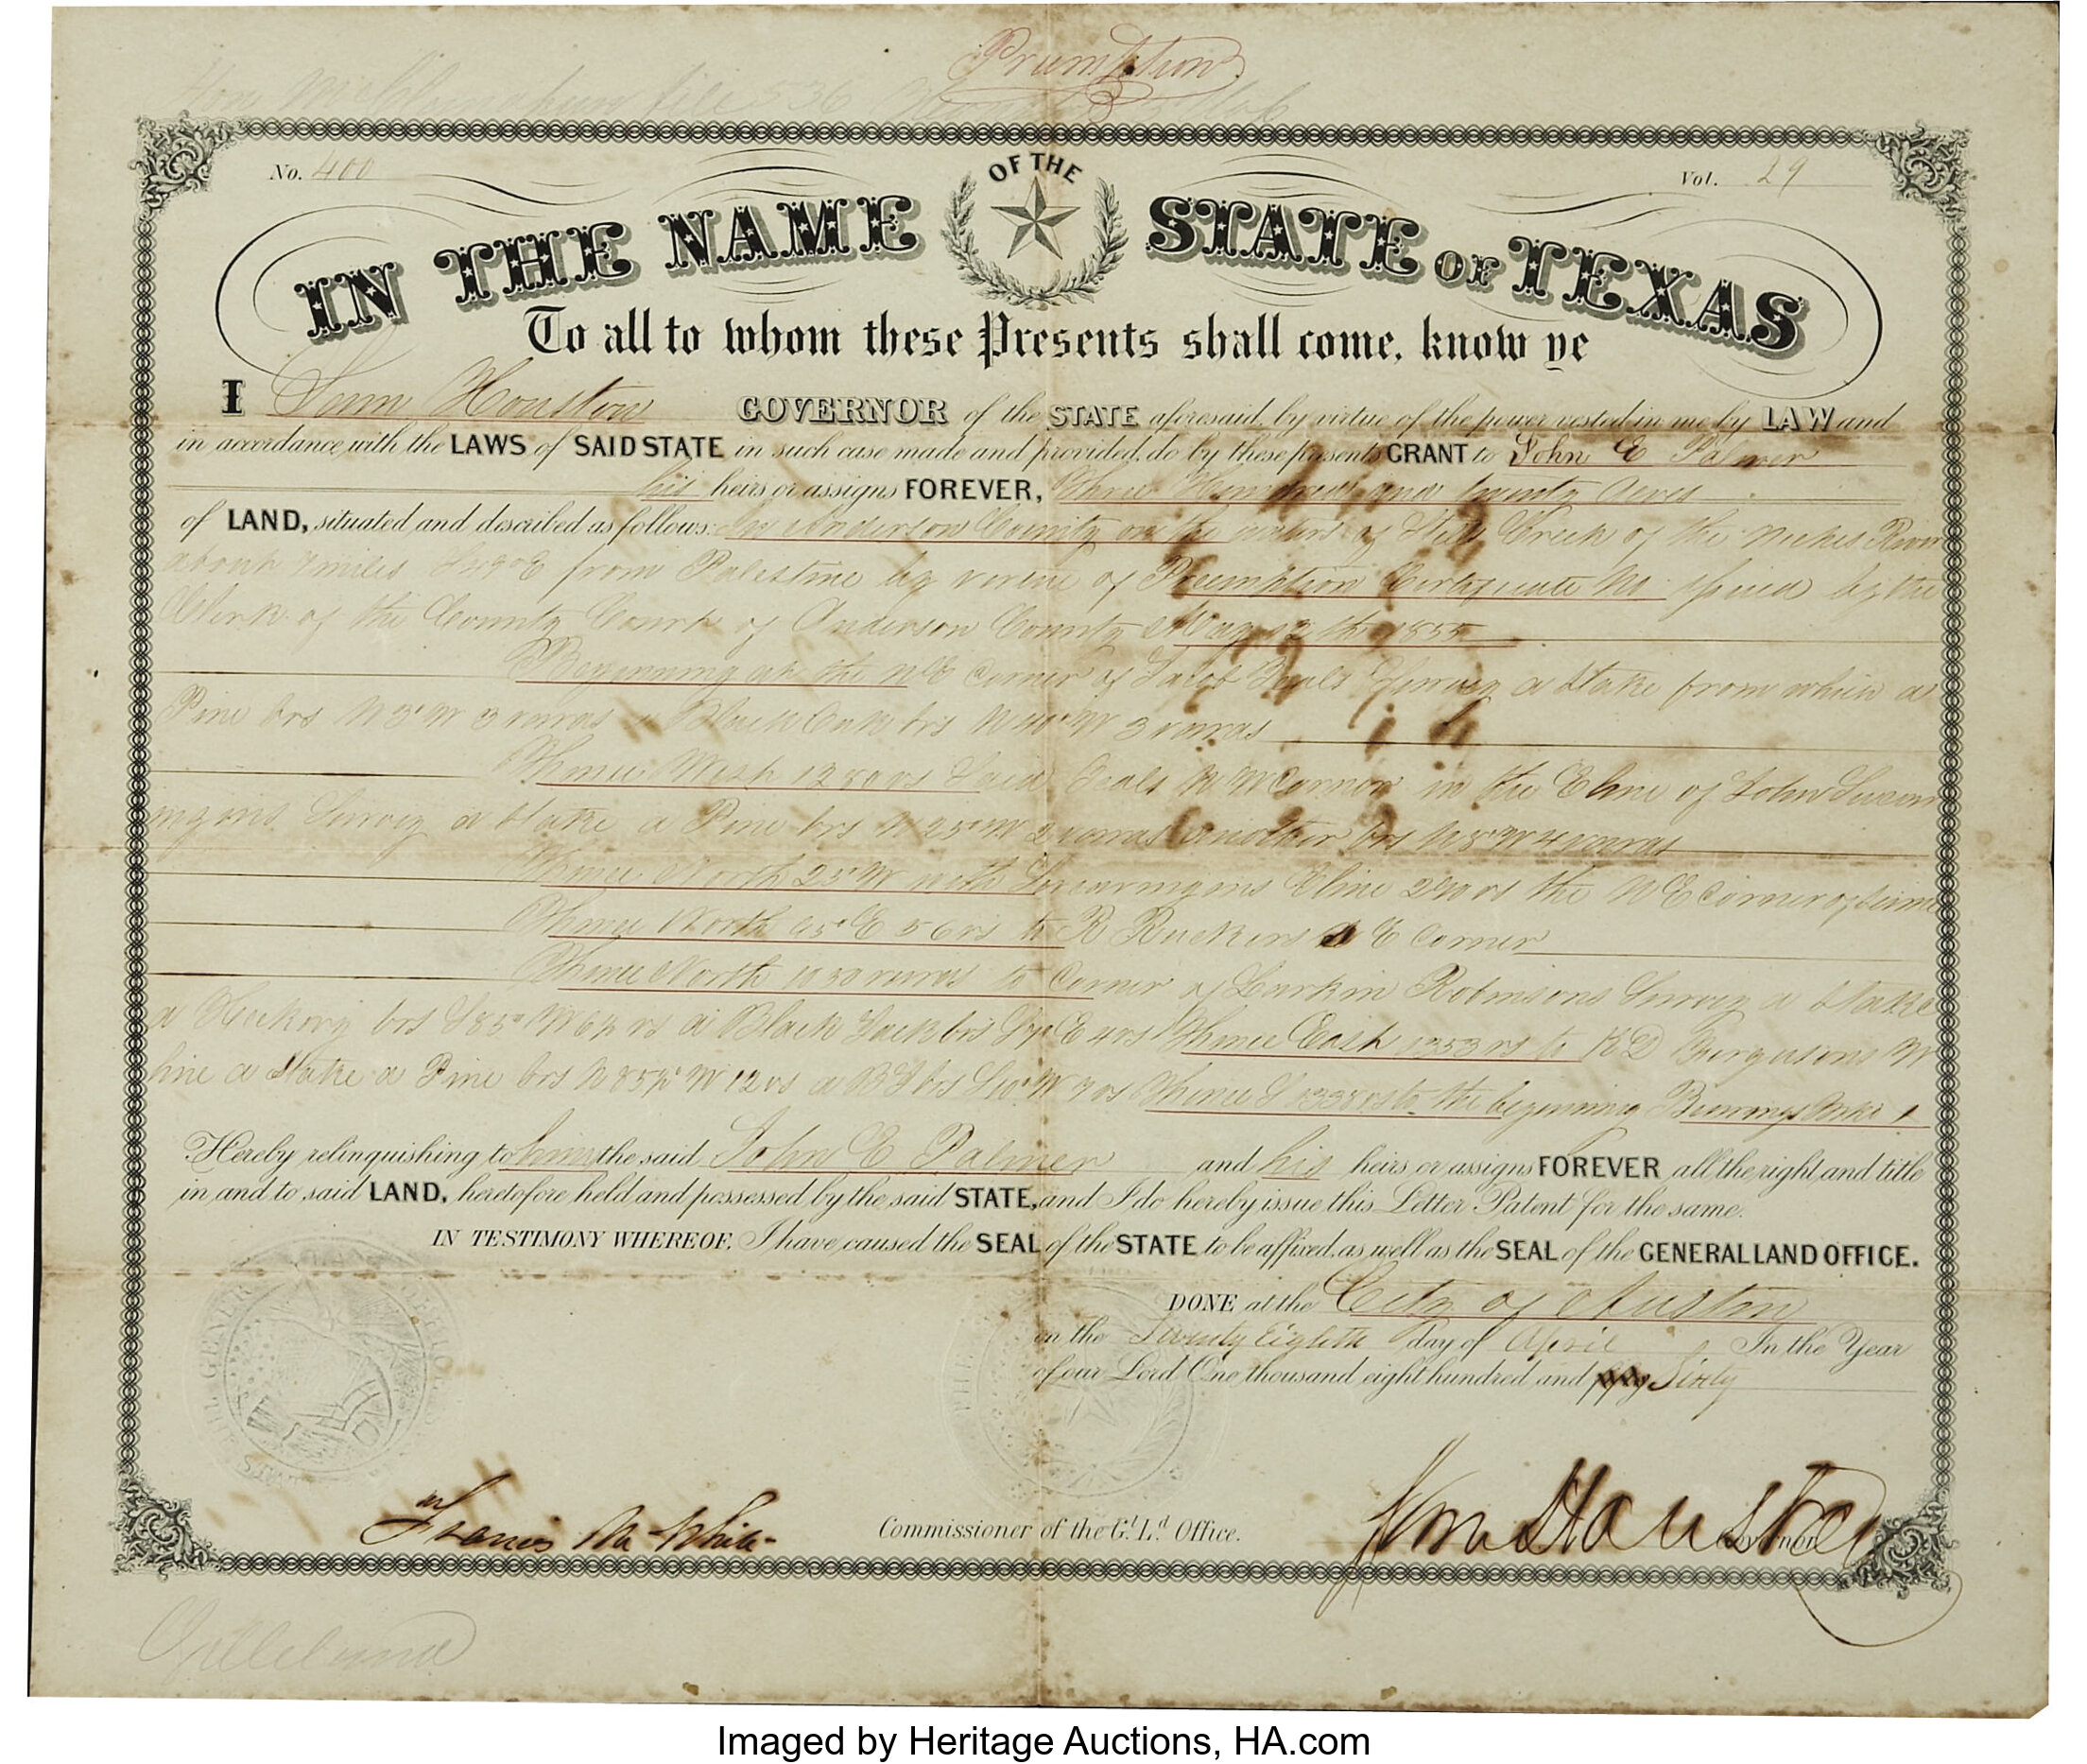 Preemption
No. 400
Vol. 29
IN THE NAME OF THE STATE OF TEXAS
To all to whom these Presents shall come, know ye
I Sam Houston GOVERNOR of the STATE aforesaid, by virtue of the power vested in me by LAW and
in accordance with the LAWS of SAID STATE in such case made and provided, do by these presents GRANT to John E Palmer
his heirs or assigns FOREVER, Three Hundred and twenty Acres
of LAND, situated and described as follows: In Anderson County on the waters of Creek of the Neches River
about 7 miles from Palestine by virtue of Preemption Certificate No issued by the
Clerk of the County Court of Anderson County May 12th 1855
Beginning at the NE Corner of Jacob Survey a Stake from which a
Pine brs N 3° W 3 varas a Black Oak brs N 40° W 3 varas
Thence West 1280 vs said N W Corner in the E line of John
Survey a Stake a Pine brs N 25° W 2 varas another brs N 5° W 4 varas
Thence North 25° W with E line 290 vs the N E Corner of same
Thence North E 56 vs to R Ruckers E Corner
Thence North 1030 varas to Corner of Larkin Robinsons Survey a Stake
a Hickory brs S 85° W vs a Black Jack brs E 4 vs Thence East 1353 vs to Fergusons W
line a Stake a Pine brs W 12 vs a BJ brs W 7 vs Thence S 1338 vs to the beginning
Hereby relinquishing to him the said John E Palmer and his heirs or assigns FOREVER all the right and title
in and to said LAND, heretofore held and possessed by the said STATE, and I do hereby issue this Letter Patent for the same.
IN TESTIMONY WHEREOF, I have caused the SEAL of the STATE to be affixed, as well as the SEAL of the GENERAL LAND OFFICE.
DONE at the City of Austin
on the Twenty Eighth day of April In the Year
of our Lord One thousand eight hundred and Sixty
Francis M White
Commissioner of the G.l L.d Office.
Sam Houston
Governor
Imaged by Heritage Auctions, HA.com